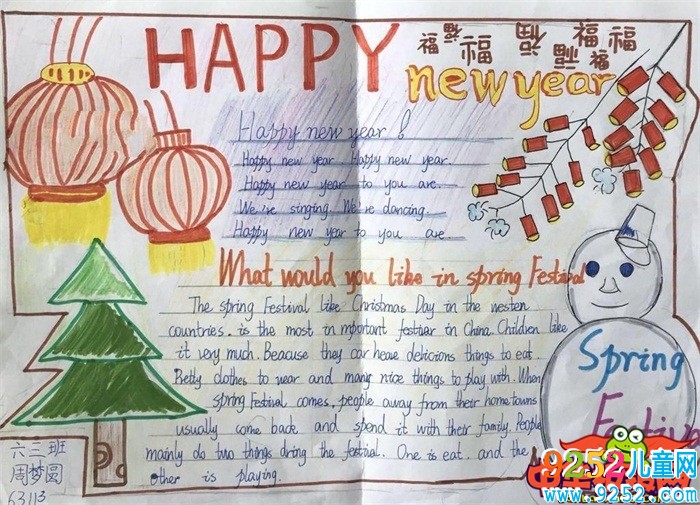 HAPPY
福 福 福 福 福 福 福
new year
Happy new year !
Happy new year. Happy new year.
Happy new year to you are.
We're singing. We're dancing.
Happy new year to you are.
What would you like in spring Festival
The spring Festival like Christmas Day in the westen
countries. is the most in mportant festiver in China. Children like
it very much. Beacuse they car heave delicions things to eat.
Pretty clothes to wear and many nice things to play with. When
spring Festival comes, people away from their home towns
usually come back and spend it with their family. People
mainly do two things dring the festival. One is eat. and the
other is playing.
Spring
Festival
六二班
周梦圆
63113
9252儿童网
www.9252.com